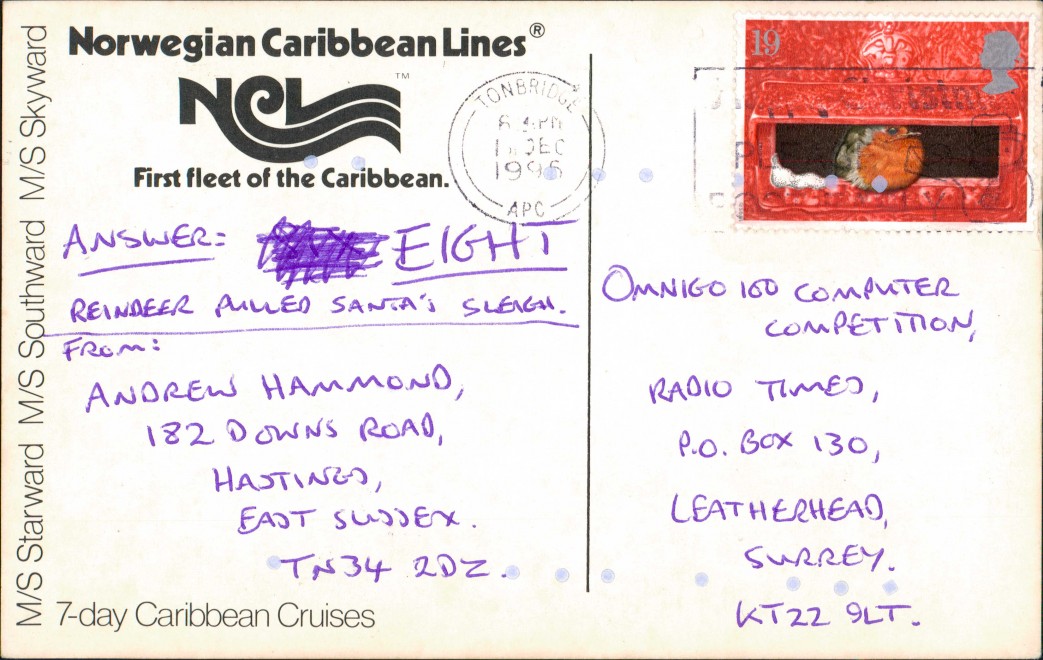 Norwegian Caribbean Lines®
NCL™
First fleet of the Caribbean.
M/S Starward M/S Southward M/S Skyward
7-day Caribbean Cruises
ANSWER: EIGHT
REINDEER PULLED SANTA'S SLEIGH.
FROM:
ANDREW HAMMOND,
182 DOWNS ROAD,
HASTINGS,
EAST SUSSEX.
TN34 2DZ.
TONBRIDGE
DEC
1996
APC
19
OMNIGO 100 COMPUTER
COMPETITION,
RADIO TIMES,
P.O. BOX 130,
LEATHERHEAD,
SURREY.
KT22 9LT.